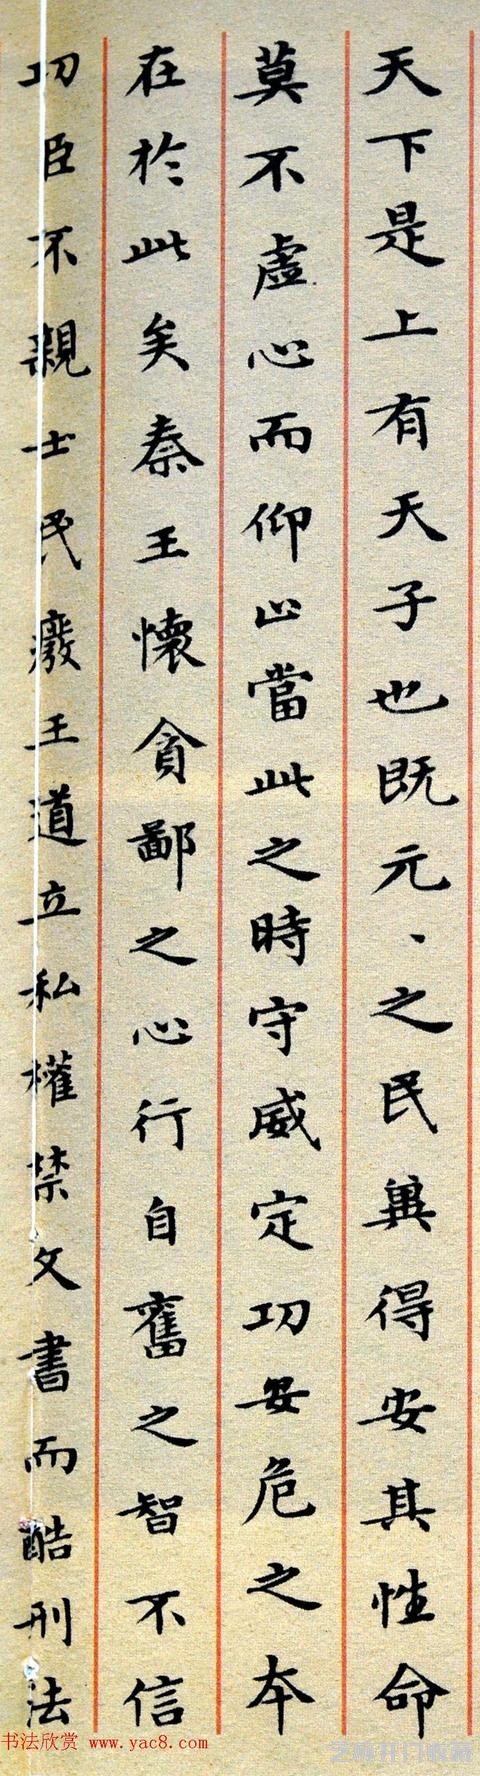 天下是上有天子也既元、之民兾得安其性命
莫不虛心而仰止當此之時守威定功安危之本
在於此矣秦王懷貪鄙之心行自奮之智不信
功臣不親士民廢王道立私權禁文書而酷刑法
书法欣赏 www.yac8.com